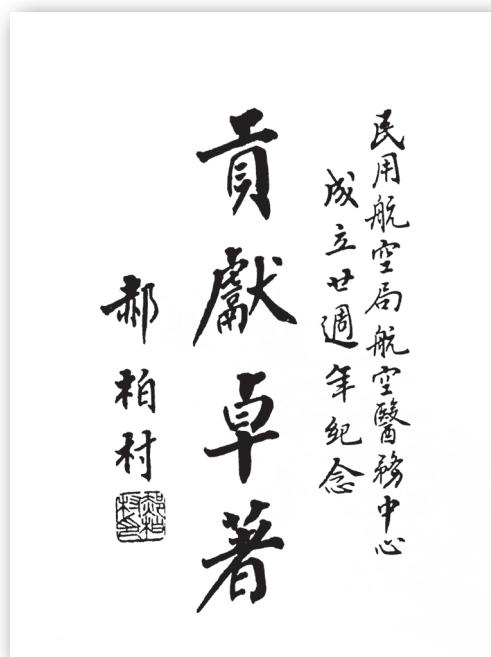 民用航空局航空醫務中心
成立廿週年紀念
貢獻卓著
郝柏村